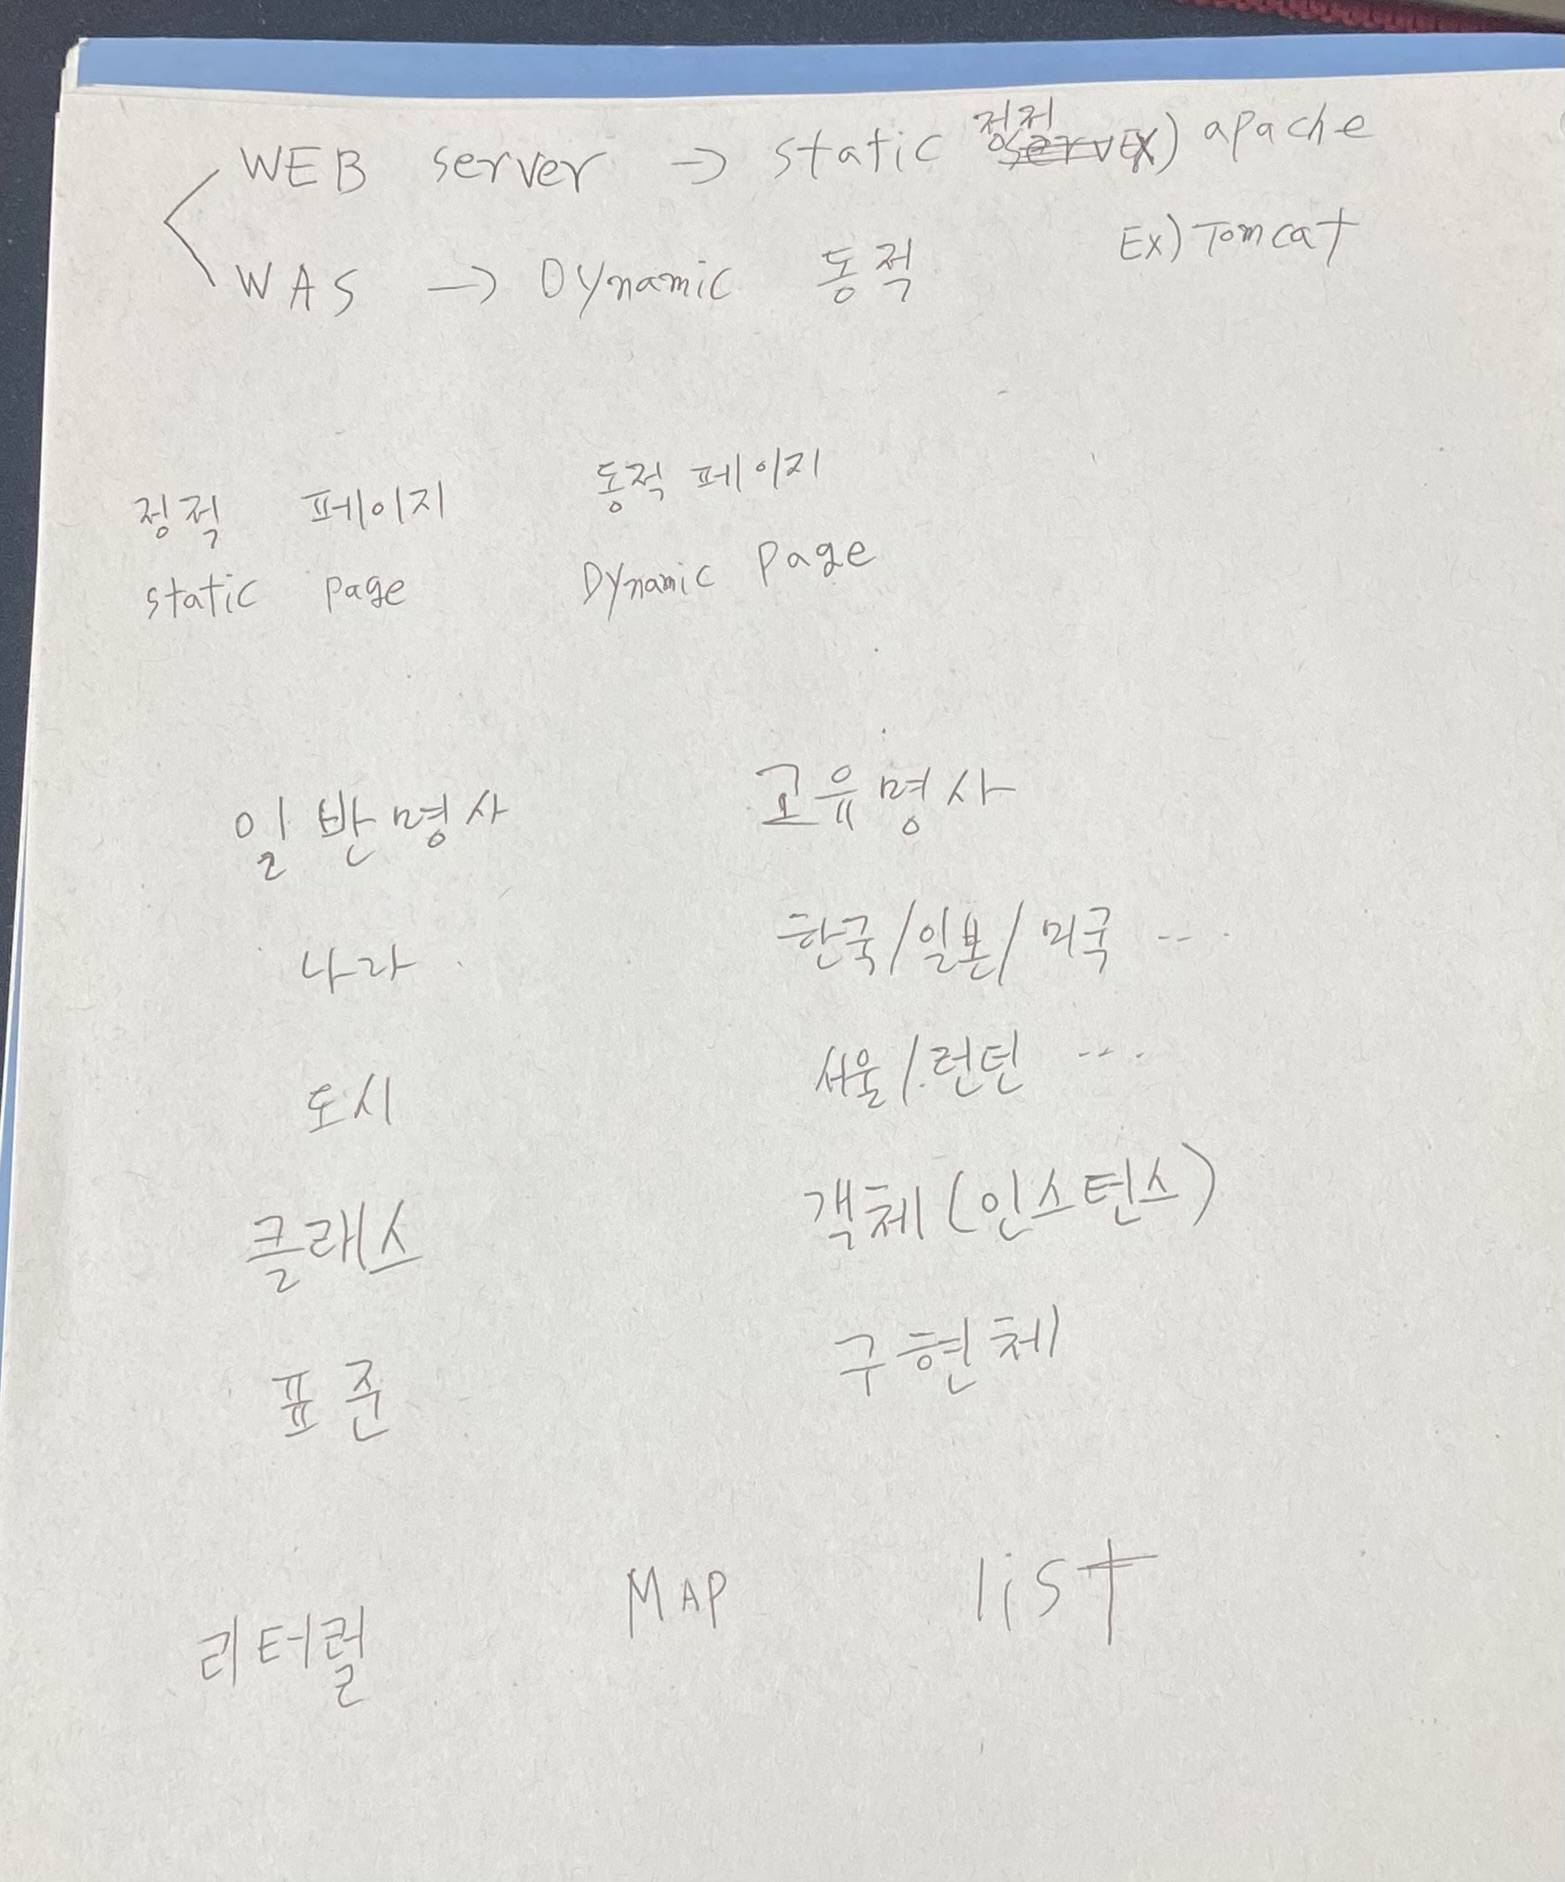 WEB server → static 정적 Ex) apache
WAS → Dynamic 동적 Ex) Tomcat
정적 페이지 동적 페이지
static page Dynamic page
일반명사 고유명사
나라 한국/일본/미국 ...
도시 서울/런던 ...
클래스 객체(인스턴스)
표준 구현체
리터럴 MAP list